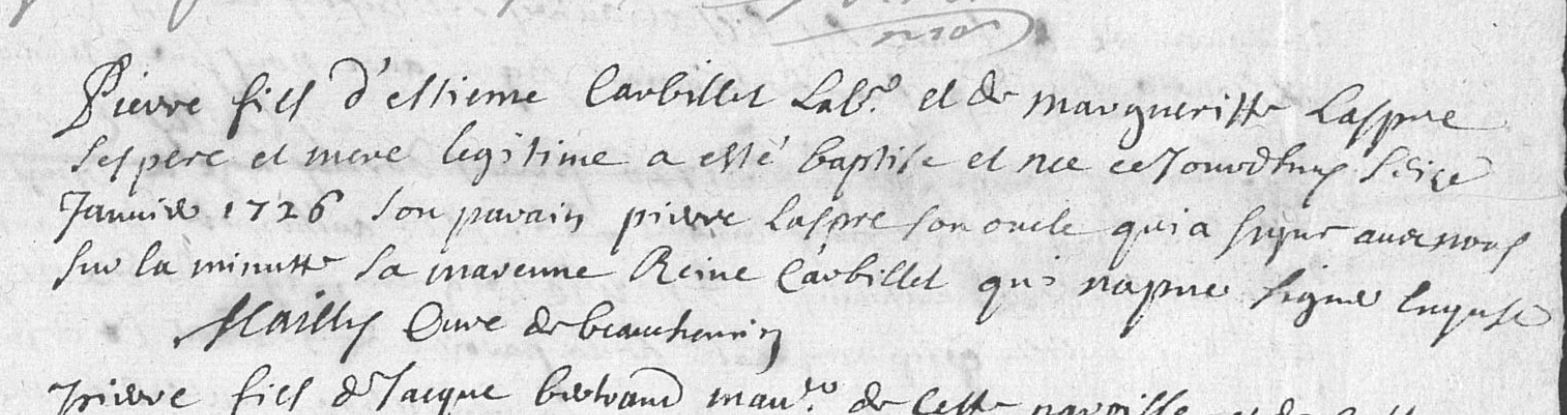 Pierre fils d'estienne Carbillet Labr. et de margueritte Laspre
ses pere et mere legitime a esté baptise et nee ce Jourdhuy seize
Janvier 1726 son parain pierre Laspre son oncle qui a signe avec nous
sur la minutte sa marenne Reine Carbillet qui na peu signer
Mailly Cure de beauchemin
pierre fils de Jacque bertrand manr. de cette paroisse et de